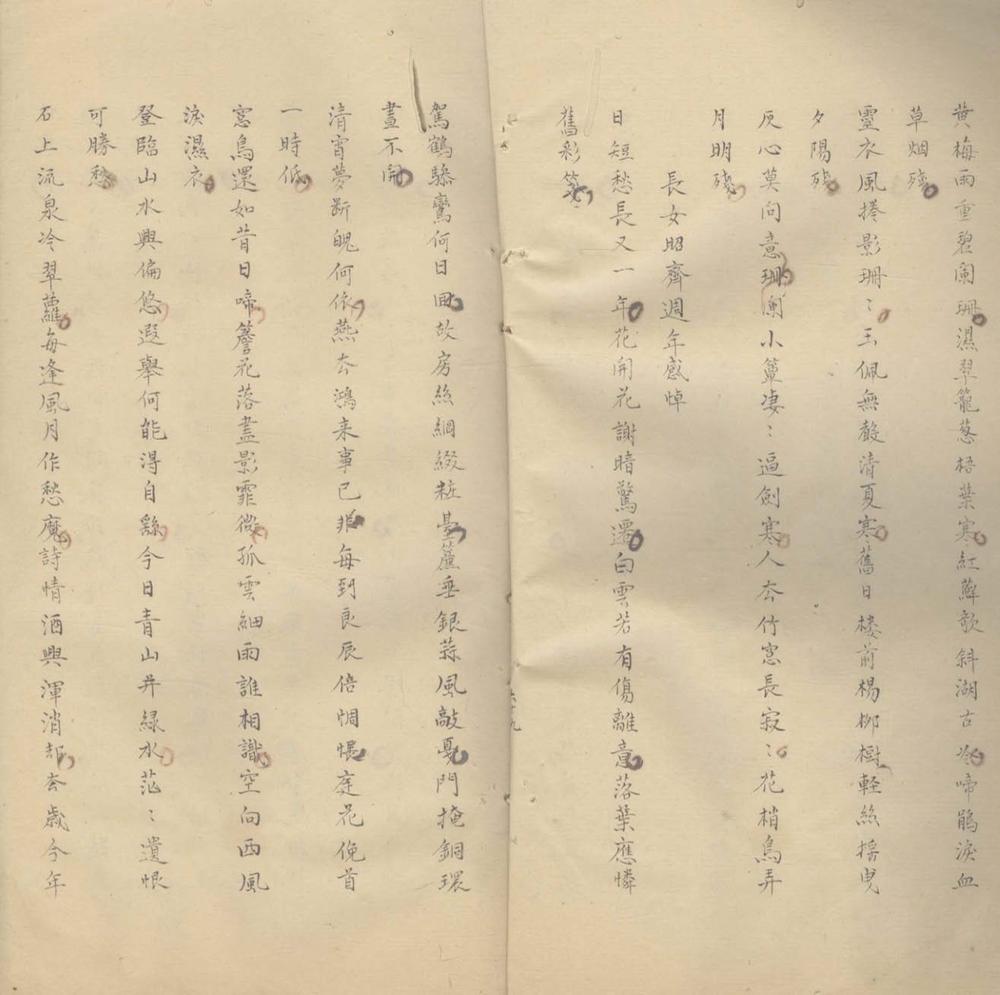 黄梅雨重碧闌珊濕翠籠葱梧葉寒紅蘚欹斜湖古冷啼鵑淚血
草烟殘
靈衣風捲影珊〻玉佩無聲清夏寒舊日樓前楊柳樹軽絲揺曳
夕陽殘
灰心莫向意珊闌小簟凄〻逼劍寒人去竹窓長寂〻花梢鳥弄
月明殘
長女昭齊週年感悼
日短愁長又一年花開花謝暗驚遷白雲若有傷離意落葉應憐
舊彩箋
駕鶴驂鸞何日回故房絲網綴粧臺簾垂銀蒜風敲戛門掩銅環
晝不開
清宵夢斷魄何依燕去鴻来事已非每到良辰倍惆悵庭花俛首
一時低
窓烏還如昔日啼簷花落盡影霏微孤雲細雨誰相識空向西風
淚濕衣
登臨山水興偏悠遐舉何能得自繇今日青山并緑水茫〻遺恨
可勝愁
石上流泉冷翠蘿每逢風月作愁魔詩情酒興渾消却去歲今年